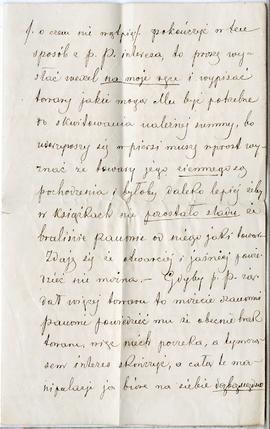 /. o czem nie wątpię/ pokończyć w ten
sposób z p. P. interesa, to proszę wy-
słać weksel na moje ręce i wypisać
towary jakie mogą Mu być potrzebne
do skwitowania należnej summy, bo
uderzywszy się w piersi muszę wprost wy-
znać że towary jego ciemnego są
pochodzenia i byłoby daleko lepiej żeby
w książkach nie pozostało śladu że
braliście panowie od niego jaki towar.
Zdaje się że otwarciej i jaśniej powie-
dzieć nie można. — Gdyby p. P. żą-
dał więcej towaru to możecie szanowni
panowie powiedzieć mu że obecnie brak
towaru, więc niech poczeka, a tymcza-
sem interes skończyć, a całą tę ma-
nipulację ja biorę na siebie